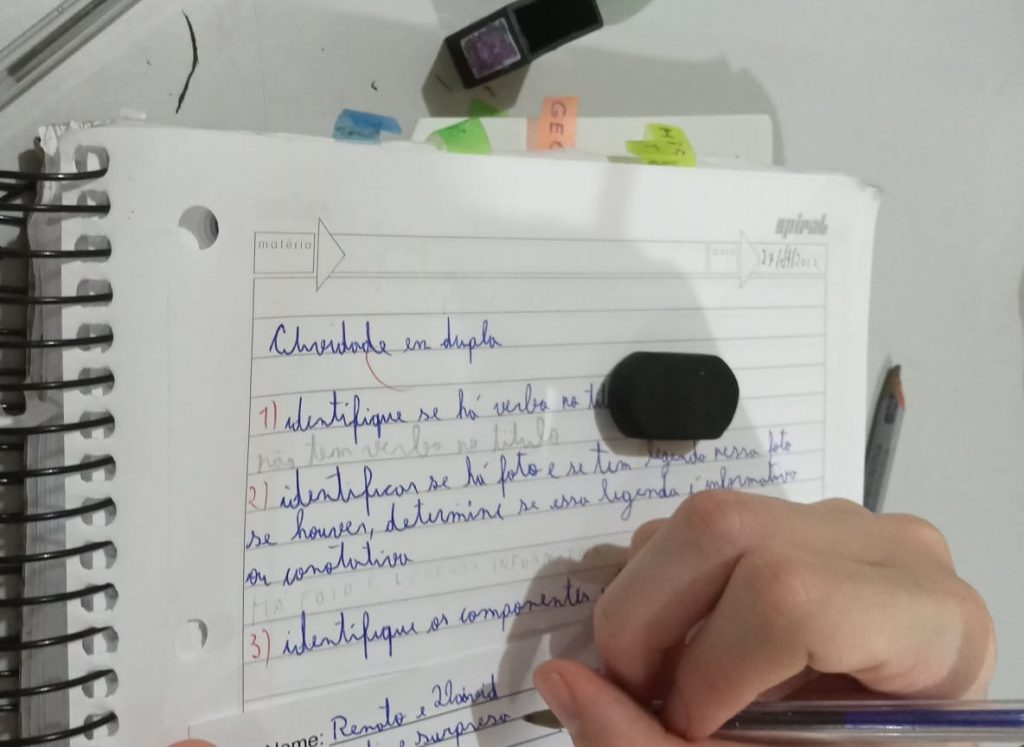 GEO
spiral
matéria
data
Atividade en dupla
1) identifique se há verbo no
não tem verbo no titulo
2) identificar se há foto e se tem legenda nessa foto
se houver, determine se essa legenda é informativa
ou conotativa
HÁ FOTO E LEGENDA
3) identifique os componentes
Nome: Renato e
e surpresa